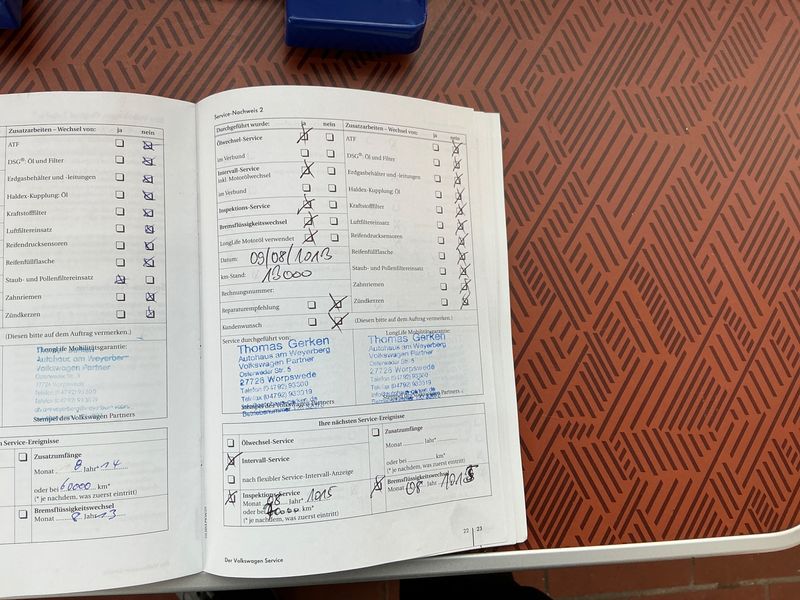 Zusatzarbeiten – Wechsel von: ja nein
ATF
DSG®: Öl und Filter
Erdgasbehälter und -leitungen
Haldex-Kupplung: Öl
Kraftstofffilter
Luftfiltereinsatz
Reifendrucksensoren
Reifenfüllflasche
Staub- und Pollenfiltereinsatz
Zahnriemen
Zündkerzen
(Diesen bitte auf dem Auftrag vermerken.)
LongLife Mobilitätsgarantie:
Autohaus am Weyerberg
Volkswagen Partner
Osterweder Str. 5
27726 Worpswede
Stempel des Volkswagen Partners
n Service-Ereignisse
Zusatzumfänge
Monat 8 Jahr* 14
oder bei 60000 km*
(* je nachdem, was zuerst eintritt)
Bremsflüssigkeitswechsel
Monat 8 Jahr 13
Service-Nachweis 2
Durchgeführt wurde: ja nein
Ölwechsel-Service
im Verbund
Intervall-Service
inkl. Motorölwechsel
im Verbund
Inspektions-Service
Bremsflüssigkeitswechsel
LongLife Motoröl verwendet
Datum: 09/08/1013
km-Stand: 13000
Rechnungsnummer:
Reparaturempfehlung
Kundenwunsch
Service durchgeführt von:
Thomas Gerken
Autohaus am Weyerberg
Volkswagen Partner
Osterweder Str. 5
27726 Worpswede
Telefon (04792) 93300
Telefax (04792) 933019
Stempel des Volkswagen Partners
Zusatzarbeiten – Wechsel von: ja nein
ATF
DSG®: Öl und Filter
Erdgasbehälter und -leitungen
Haldex-Kupplung: Öl
Kraftstofffilter
Luftfiltereinsatz
Reifendrucksensoren
Reifenfüllflasche
Staub- und Pollenfiltereinsatz
Zahnriemen
Zündkerzen
(Diesen bitte auf dem Auftrag vermerken.)
LongLife Mobilitätsgarantie:
Thomas Gerken
Autohaus am Weyerberg
Volkswagen Partner
Osterweder Str. 5
27726 Worpswede
Telefon (04792) 93300
Telefax (04792) 933019
Stempel des Volkswagen Partners
Ihre nächsten Service-Ereignisse
Ölwechsel-Service
Intervall-Service
nach flexibler Service-Intervall-Anzeige
Inspektions-Service
Monat 08 Jahr* 1015
oder bei km*
(* je nachdem, was zuerst eintritt)
Zusatzumfänge
Monat Jahr*
oder bei km*
(* je nachdem, was zuerst eintritt)
Bremsflüssigkeitswechsel
Monat 08 Jahr 1015
22 | 23
Der Volkswagen Service